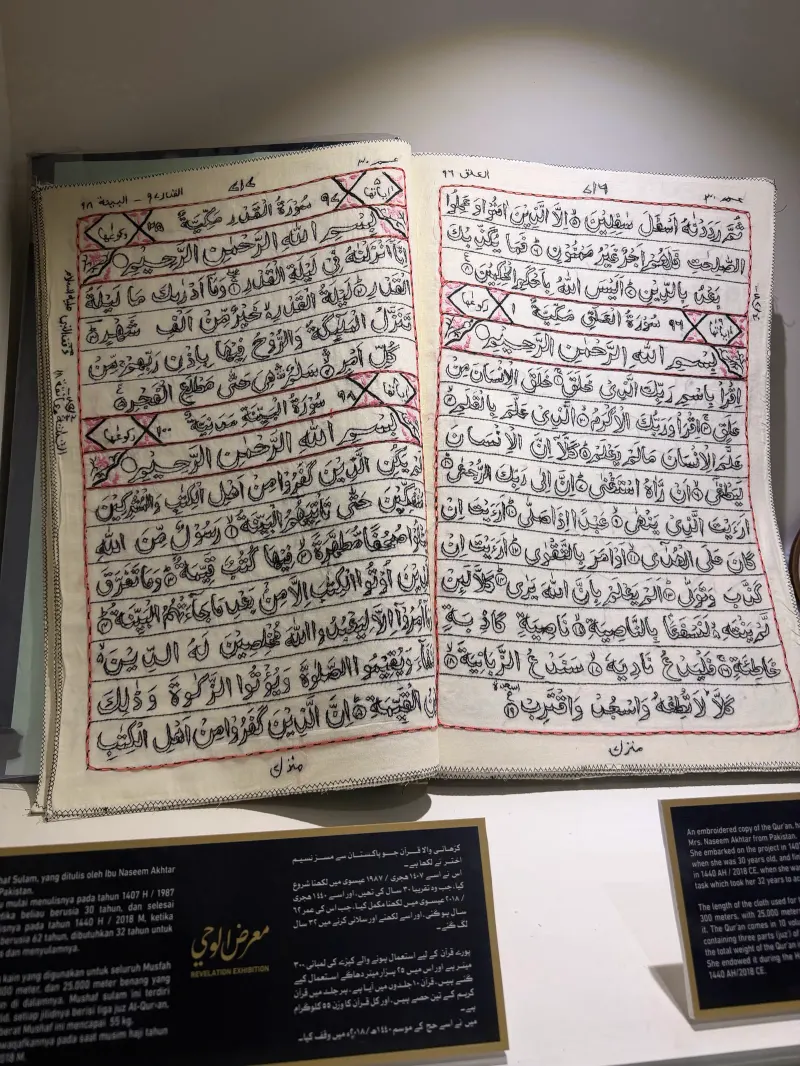 العلق ٩٦
ثُمَّ رَدَدْنٰهُ اَسْفَلَ سٰفِلِيْنَ ۙ اِلَّا الَّذِيْنَ اٰمَنُوْا وَعَمِلُوا
الصّٰلِحٰتِ فَلَهُمْ اَجْرٌ غَيْرُ مَمْنُوْنٍ ؕ فَمَا يُكَذِّبُكَ
بَعْدُ بِالدِّيْنِ ؕ اَلَيْسَ اللّٰهُ بِاَحْكَمِ الْحٰكِمِيْنَ
اٰيَاتُهَا ٩٦ سُوْرَةُ الْعَلَقِ مَكِّيَّةٌ ١ رُكُوْعُهَا
بِسْمِ اللّٰهِ الرَّحْمٰنِ الرَّحِيْمِ
اِقْرَاْ بِاسْمِ رَبِّكَ الَّذِيْ خَلَقَ ۚ خَلَقَ الْاِنْسَانَ مِنْ
عَلَقٍ ۚ اِقْرَاْ وَرَبُّكَ الْاَكْرَمُ ۙ الَّذِيْ عَلَّمَ بِالْقَلَمِ ۙ
عَلَّمَ الْاِنْسَانَ مَا لَمْ يَعْلَمْ ؕ كَلَّاۤ اِنَّ الْاِنْسَانَ
لَيَطْغٰٓى ۙ اَنْ رَّاٰهُ اسْتَغْنٰى ؕ اِنَّ اِلٰى رَبِّكَ الرُّجْعٰى ؕ
اَرَءَيْتَ الَّذِيْ يَنْهٰى ۙ عَبْدًا اِذَا صَلّٰى ؕ اَرَءَيْتَ اِنْ
كَانَ عَلَى الْهُدٰٓى ۙ اَوْ اَمَرَ بِالتَّقْوٰى ؕ اَرَءَيْتَ اِنْ
كَذَّبَ وَتَوَلّٰى ؕ اَلَمْ يَعْلَمْ بِاَنَّ اللّٰهَ يَرٰى ؕ كَلَّا لَئِنْ
لَّمْ يَنْتَهِ لَنَسْفَعًا بِالنَّاصِيَةِ ۙ نَاصِيَةٍ كَاذِبَةٍ
خَاطِئَةٍ ۚ فَلْيَدْعُ نَادِيَهٗ ۙ سَنَدْعُ الزَّبَانِيَةَ ۙ
كَلَّا لَا تُطِعْهُ وَاسْجُدْ وَاقْتَرِبْ
منزل
القدر ٩٧ - البينة ٩٨
اٰيَاتُهَا ٩٧ سُوْرَةُ الْقَدْرِ مَكِّيَّةٌ ٢٥ رُكُوْعُهَا
بِسْمِ اللّٰهِ الرَّحْمٰنِ الرَّحِيْمِ
اِنَّاۤ اَنْزَلْنٰهُ فِيْ لَيْلَةِ الْقَدْرِ ۚ وَمَاۤ اَدْرٰىكَ مَا لَيْلَةُ
الْقَدْرِ ؕ لَيْلَةُ الْقَدْرِ خَيْرٌ مِّنْ اَلْفِ شَهْرٍ
تَنَزَّلُ الْمَلٰٓئِكَةُ وَالرُّوْحُ فِيْهَا بِاِذْنِ رَبِّهِمْ مِّنْ
كُلِّ اَمْرٍ ۙ سَلٰمٌ هِيَ حَتّٰى مَطْلَعِ الْفَجْرِ
اٰيَاتُهَا ٩٨ سُوْرَةُ الْبَيِّنَةِ مَدَنِيَّةٌ ١٠٠ رُكُوْعُهَا
بِسْمِ اللّٰهِ الرَّحْمٰنِ الرَّحِيْمِ
لَمْ يَكُنِ الَّذِيْنَ كَفَرُوْا مِنْ اَهْلِ الْكِتٰبِ وَالْمُشْرِكِيْنَ
مُنْفَكِّيْنَ حَتّٰى تَاْتِيَهُمُ الْبَيِّنَةُ ۙ رَسُوْلٌ مِّنَ اللّٰهِ
يَتْلُوْا صُحُفًا مُّطَهَّرَةً ۙ فِيْهَا كُتُبٌ قَيِّمَةٌ ؕ وَمَا تَفَرَّقَ
الَّذِيْنَ اُوْتُوا الْكِتٰبَ اِلَّا مِنْۢ بَعْدِ مَا جَآءَتْهُمُ الْبَيِّنَةُ ؕ
وَمَاۤ اُمِرُوْۤا اِلَّا لِيَعْبُدُوا اللّٰهَ مُخْلِصِيْنَ لَهُ الدِّيْنَ
حُنَفَآءَ وَيُقِيْمُوا الصَّلٰوةَ وَيُؤْتُوا الزَّكٰوةَ وَذٰلِكَ
دِيْنُ الْقَيِّمَةِ ؕ اِنَّ الَّذِيْنَ كَفَرُوْا مِنْ اَهْلِ الْكِتٰبِ
منزل
haf Sulam, yang ditulis oleh Ibu Naseem Akhtar
Pakistan.
u mulai menulisnya pada tahun 1407 H / 1987
etika beliau berusia 30 tahun, dan selesai
lisnya pada tahun 1440 H / 2018 M, ketika
berusia 62 tahun, dibutuhkan 32 tahun untuk
s dan menyulamnya.
kain yang digunakan untuk seluruh Musfah
300 meter, dan 25.000 meter benang yang
di dalamnya. Mushaf sulam ini terdiri
lid, setiap jilidnya berisi tiga juz Al-Qur-an,
berat Mushaf ini mencapai 55 kg.
ewaqafkannya pada saat musim haji tahun
2018 M.
معرض الوحي
REVELATION EXHIBITION
کڑھائی والا قرآن جسے پاکستان سے مسز نسیم
اختر نے لکھا ہے۔
اس نے ۱۴۰۷ هجری / ۱۹۸۷ عیسوی میں لکھنا شروع
کیا، جب وہ تقریبا ۳۰ سال کی تھیں، اور اسے ۱۴۴۰ هجری
/ ۲۰۱۸ عیسوی میں لکھنا مکمل کیا، جب اس کی عمر ۶۲
سال ہو گئی، اور اسے لکھنے اور سلائی کرنے میں ۳۲ سال
لگ گئے۔
پورے قرآن کے لیے استعمال ہونے والے کپڑے کی لمبائی ۳۰۰
میٹر ہے اور اس میں ۲۵ ہزار میٹر دھاگے استعمال کیے
گئے ہیں، قرآن ۱۰ جلدوں میں آیا ہے، ہر جلد میں قرآن
کریم کے تین حصے ہیں، اور کل قرآن کا وزن ۵۵ کلوگرام
ہے۔
میں نے اسے حج کے موسم ۱۴۴۰ھ/۲۰۱۸ء میں وقف کیا۔
An embroidered copy of the Qur'an,
Mrs. Naseem Akhtar from Pakistan.
She embarked on the project in 140
when she was 30 years old, and fin
in 1440 AH / 2018 CE, when she wa
task which took her 32 years to a
The length of the cloth used for t
300 meters, with 25,000 meter
it. The Qur'an comes in 10 volu
containing three parts (juz') of
the total weight of the Qur'an
She endowed it during the H
1440 AH/2018 CE.